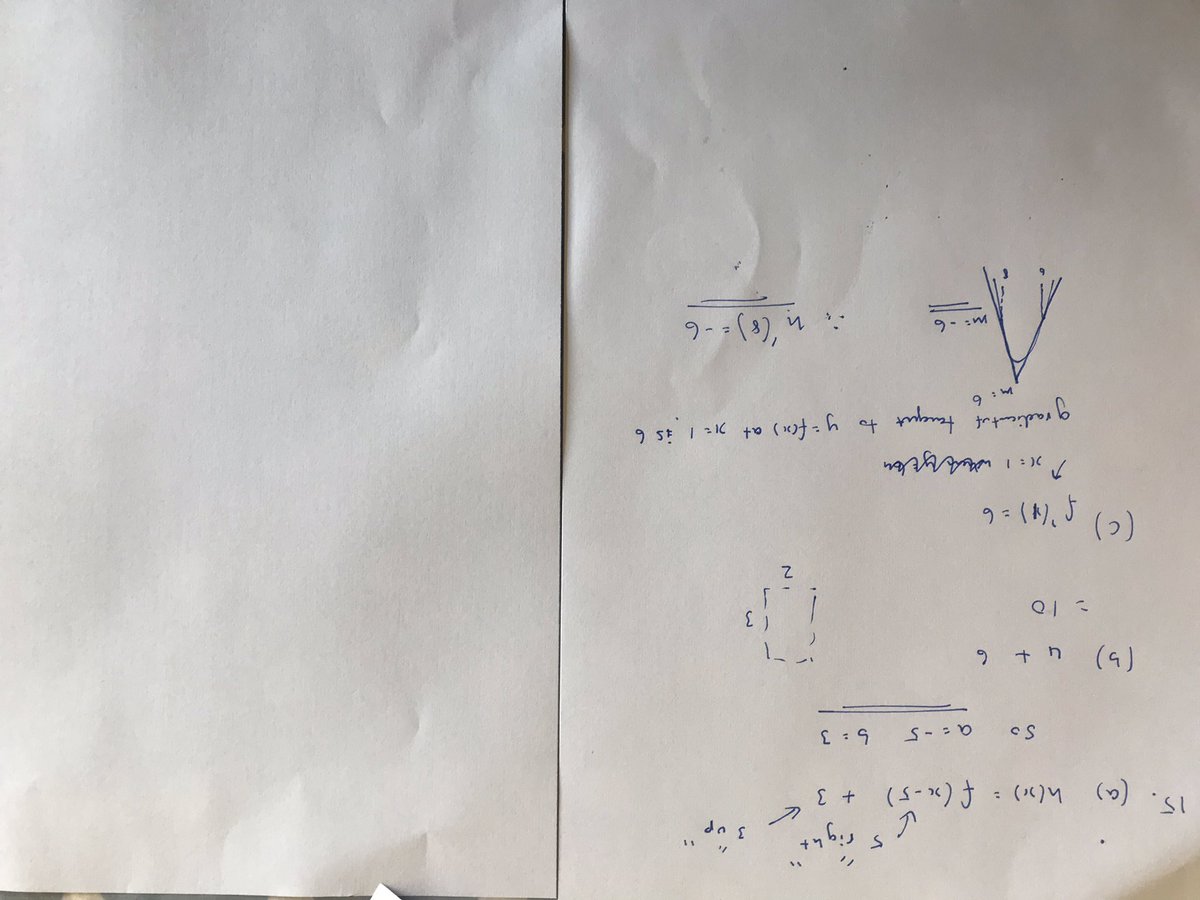 "5 right" "3 up"
15. (a) h(x) = f(x-5) + 3
so a = -5 b = 3
(b) 4 + 6
= 10
3
2
(c) f'(1) = 6
↑ x = 1
gradient of tangent to y = f(x) at x = 1 is 6
m = 6
m = -6 ∴ h'(8) = -6
6 8